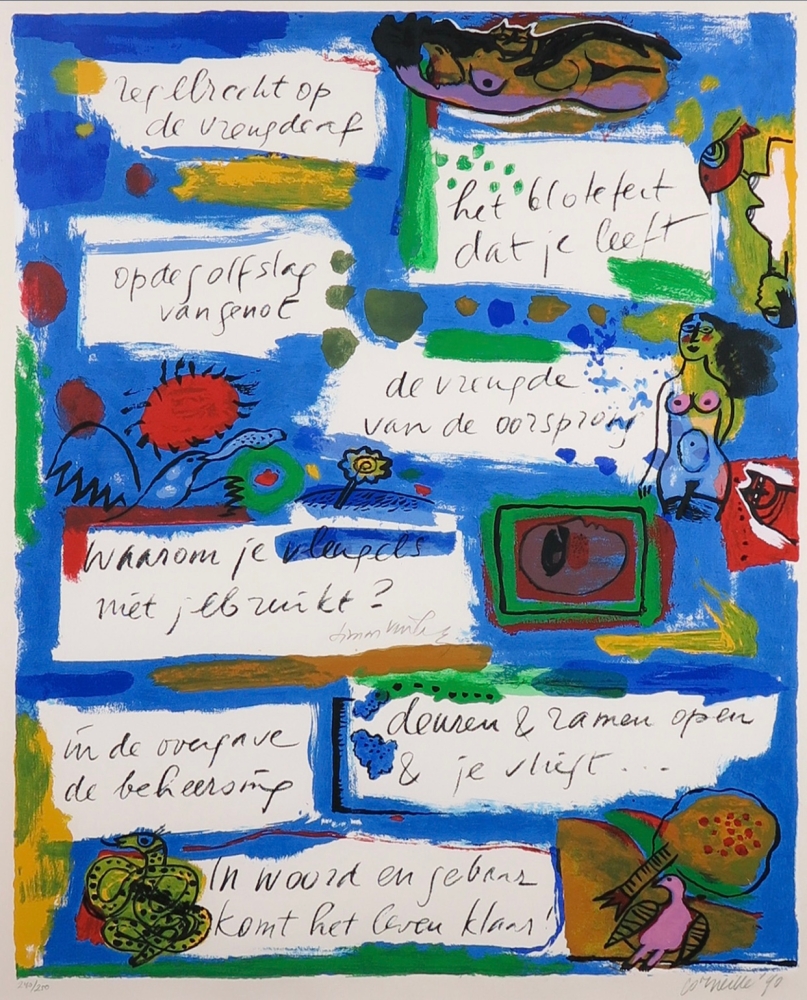 regelrecht op
de vreugde af
het blote feit
dat je leeft
op de golfslag
van genot
de vreugde
van de oorsprong
waarom je vleugels
niet gebruikt?
Simon Vinkenoog
in de overgave
de beheersing
deuren & ramen open
& je vliegt...
In woord en gebaar
komt het leven klaar!
Corneille '90